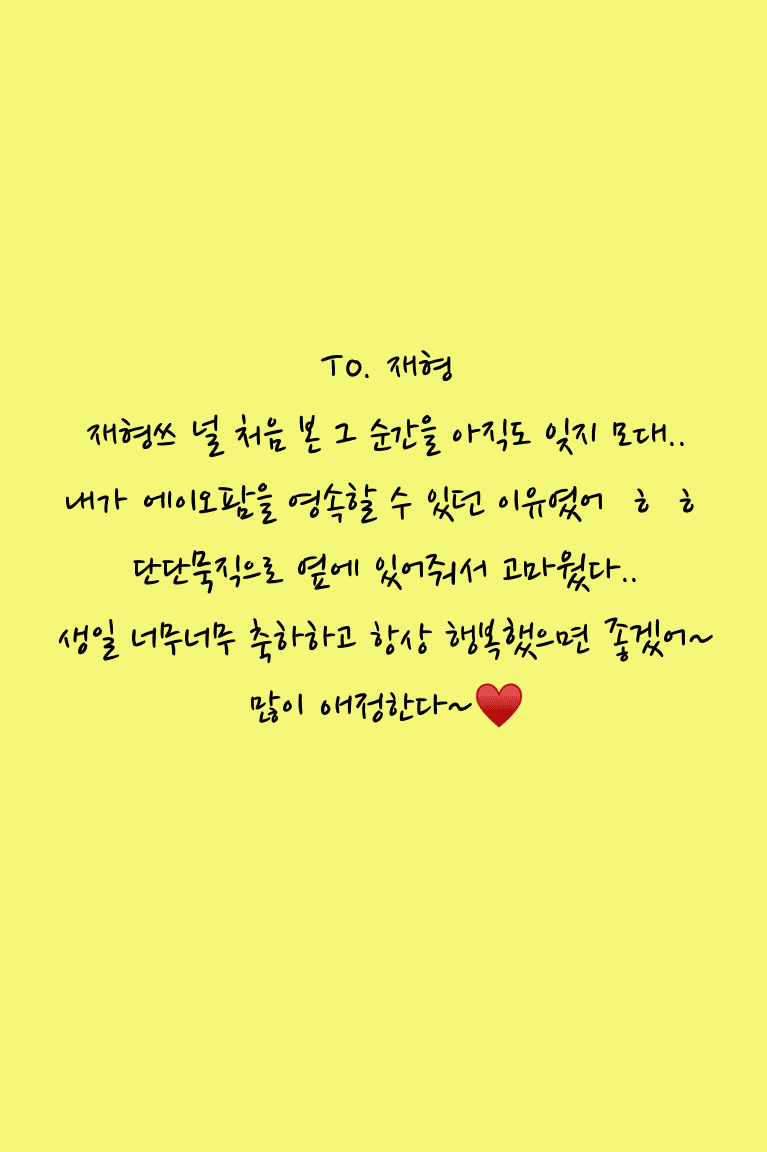 To. 재형
재형쓰 널 처음 본 그 순간을 아직도 잊지 모대..
내가 에이오팜을 영속할 수 있던 이유였어 ㅎ ㅎ
단단묵직으로 옆에 있어줘서 고마웠다..
생일 너무너무 축하하고 항상 행복했으면 좋겠어~
많이 애정한다~♥️